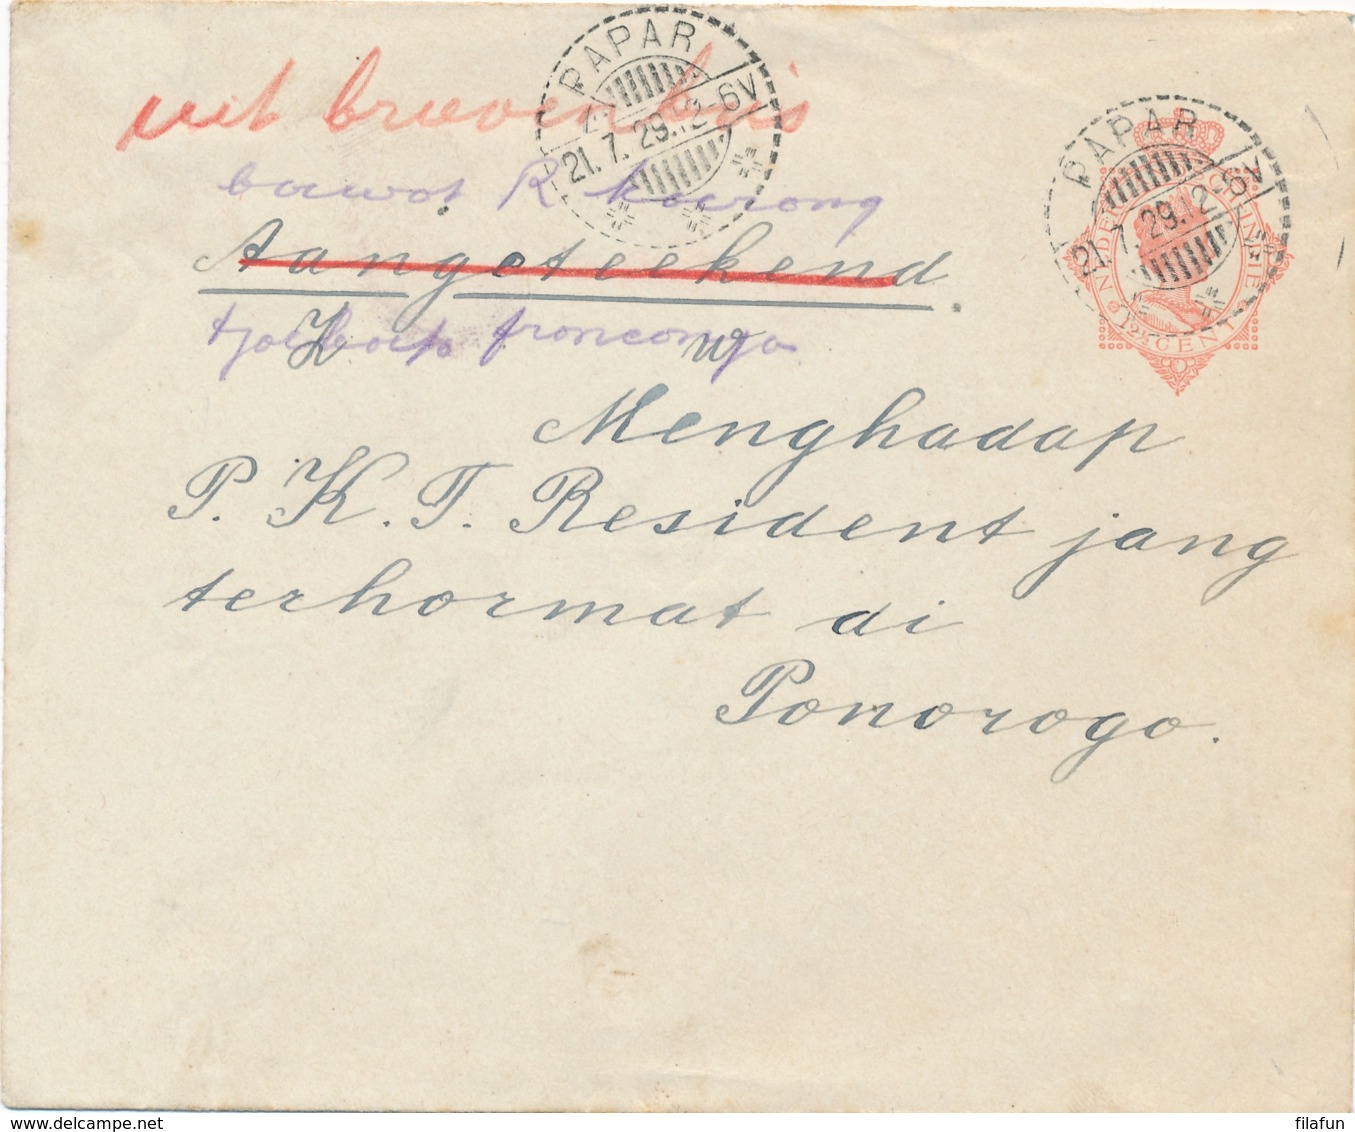 PAPAR
21.7.29.12-6V
uit brievenbus
PAPAR
21.7.29.12-6V
NEDERL. INDIE
12½ CENT
bawat R koerong
Aangeteekend.
tjoekoep franconja
K W
Menghadap
P. K. T. Resident jang
terhormat di
Ponorogo.
www.delcampe.net
filafun